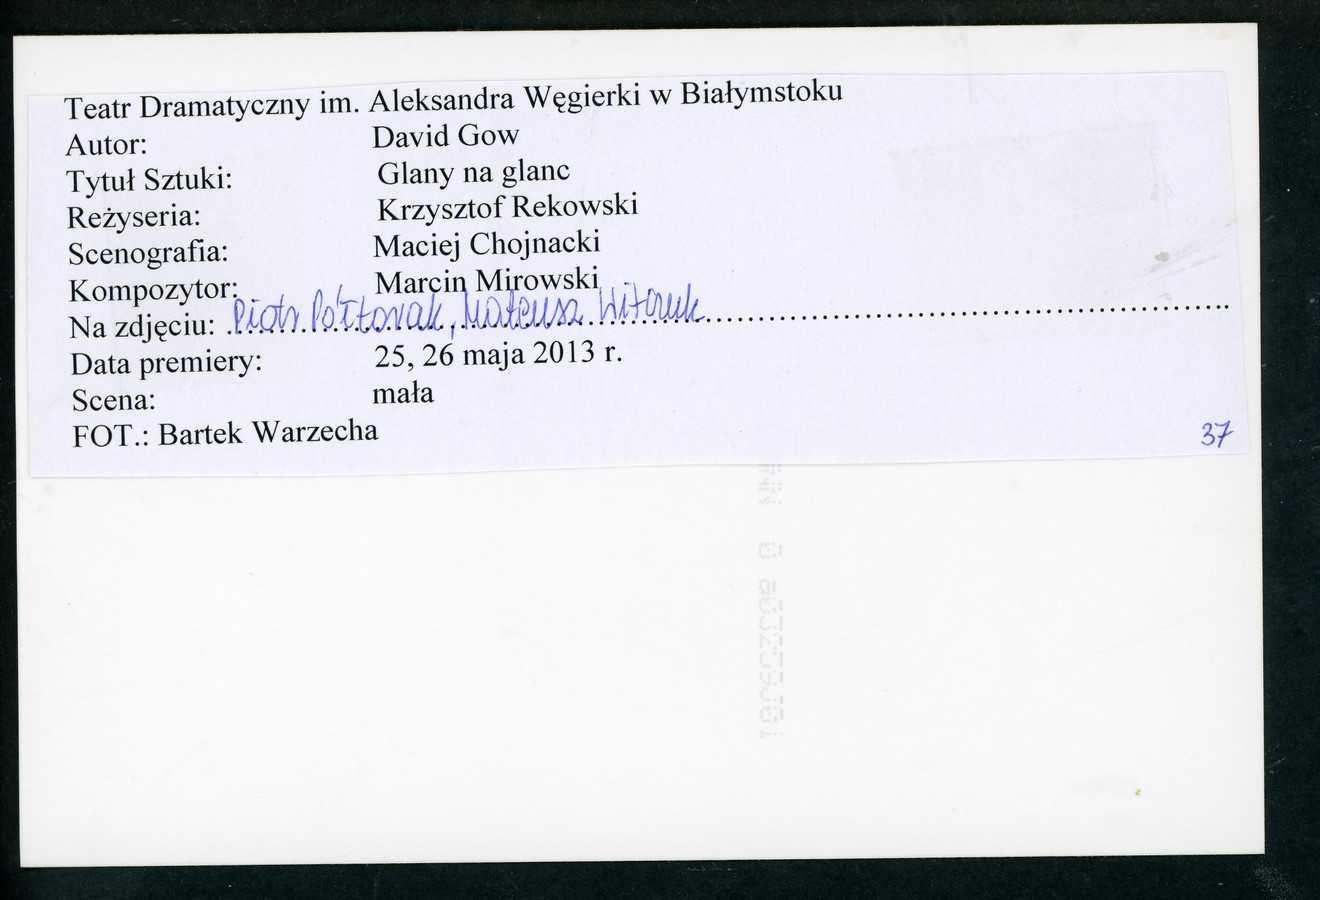 Teatr Dramatyczny im. Aleksandra Węgierki w Białymstoku
Autor: David Gow
Tytuł Sztuki: Glany na glanc
Reżyseria: Krzysztof Rekowski
Scenografia: Maciej Chojnacki
Kompozytor: Marcin Mirowski
Na zdjęciu: Piotr Półtorak, Mateusz Witczuk
Data premiery: 25, 26 maja 2013 r.
Scena: mała
FOT.: Bartek Warzecha
37